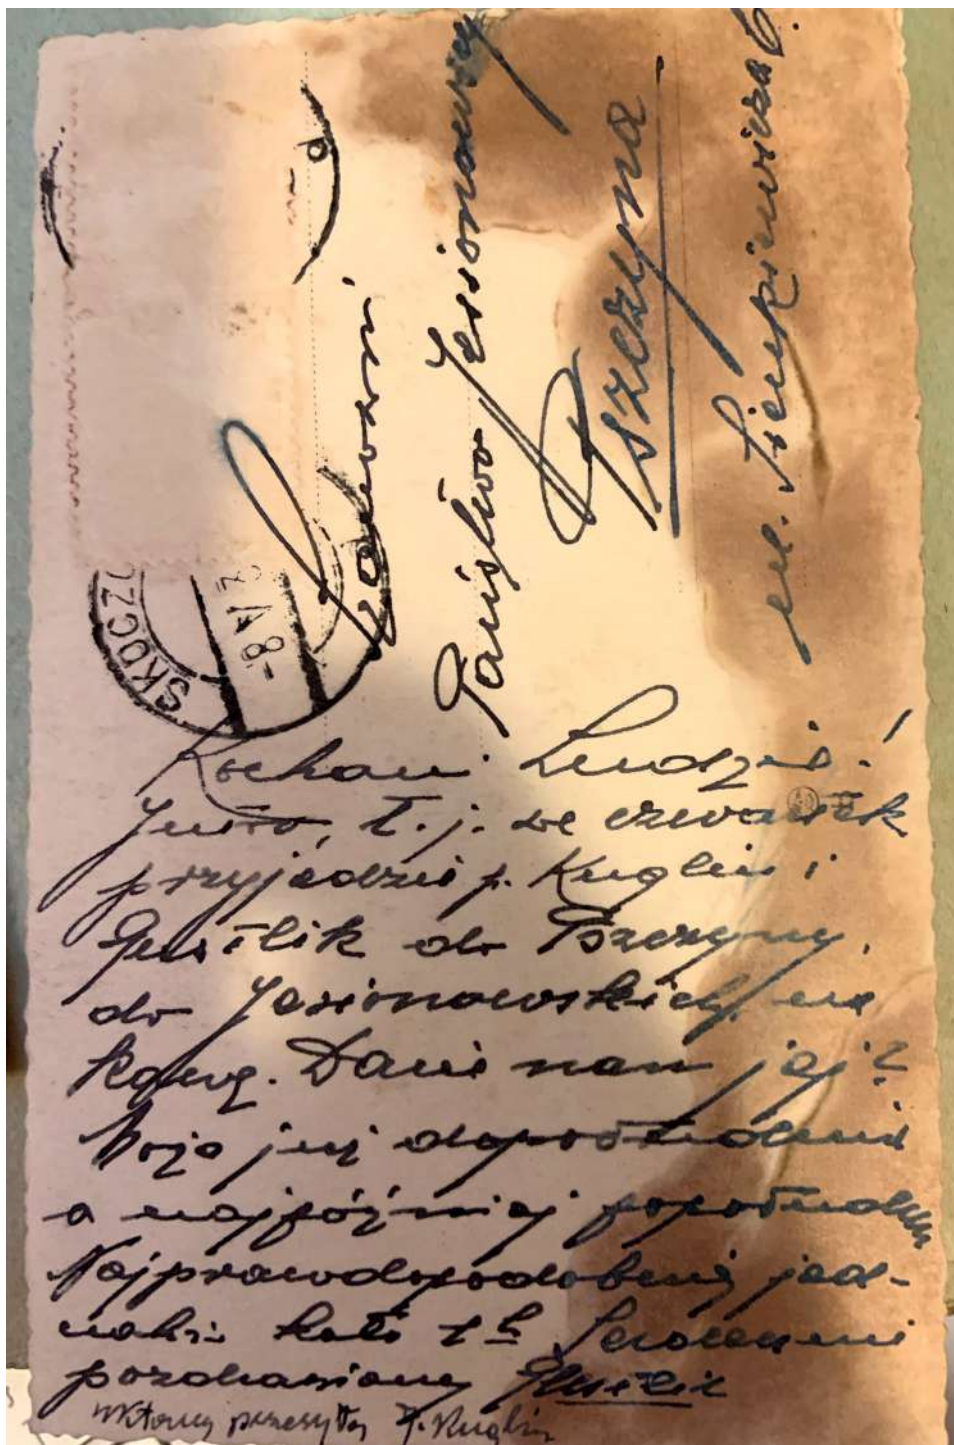 SKOCZ
-8 V 3
Państwo Jesionowscy
Pszczyna
ul. Sienkiewicza 6.
Kochani Ludzie!
Jutro, t. j. we czwartek
przyjedzie p. Kuglin i
Gustlik do Pszczyny,
do Jesionowskich, na
kawę. Dacie nam jej?
może już dopołudnia
a najpóźniej popołudniu
Najprawdopodobniej jed-
nakże koło 1h Serdecznie
pozdrawiamy Gustlik
ukłony przesyła J. Kuglin